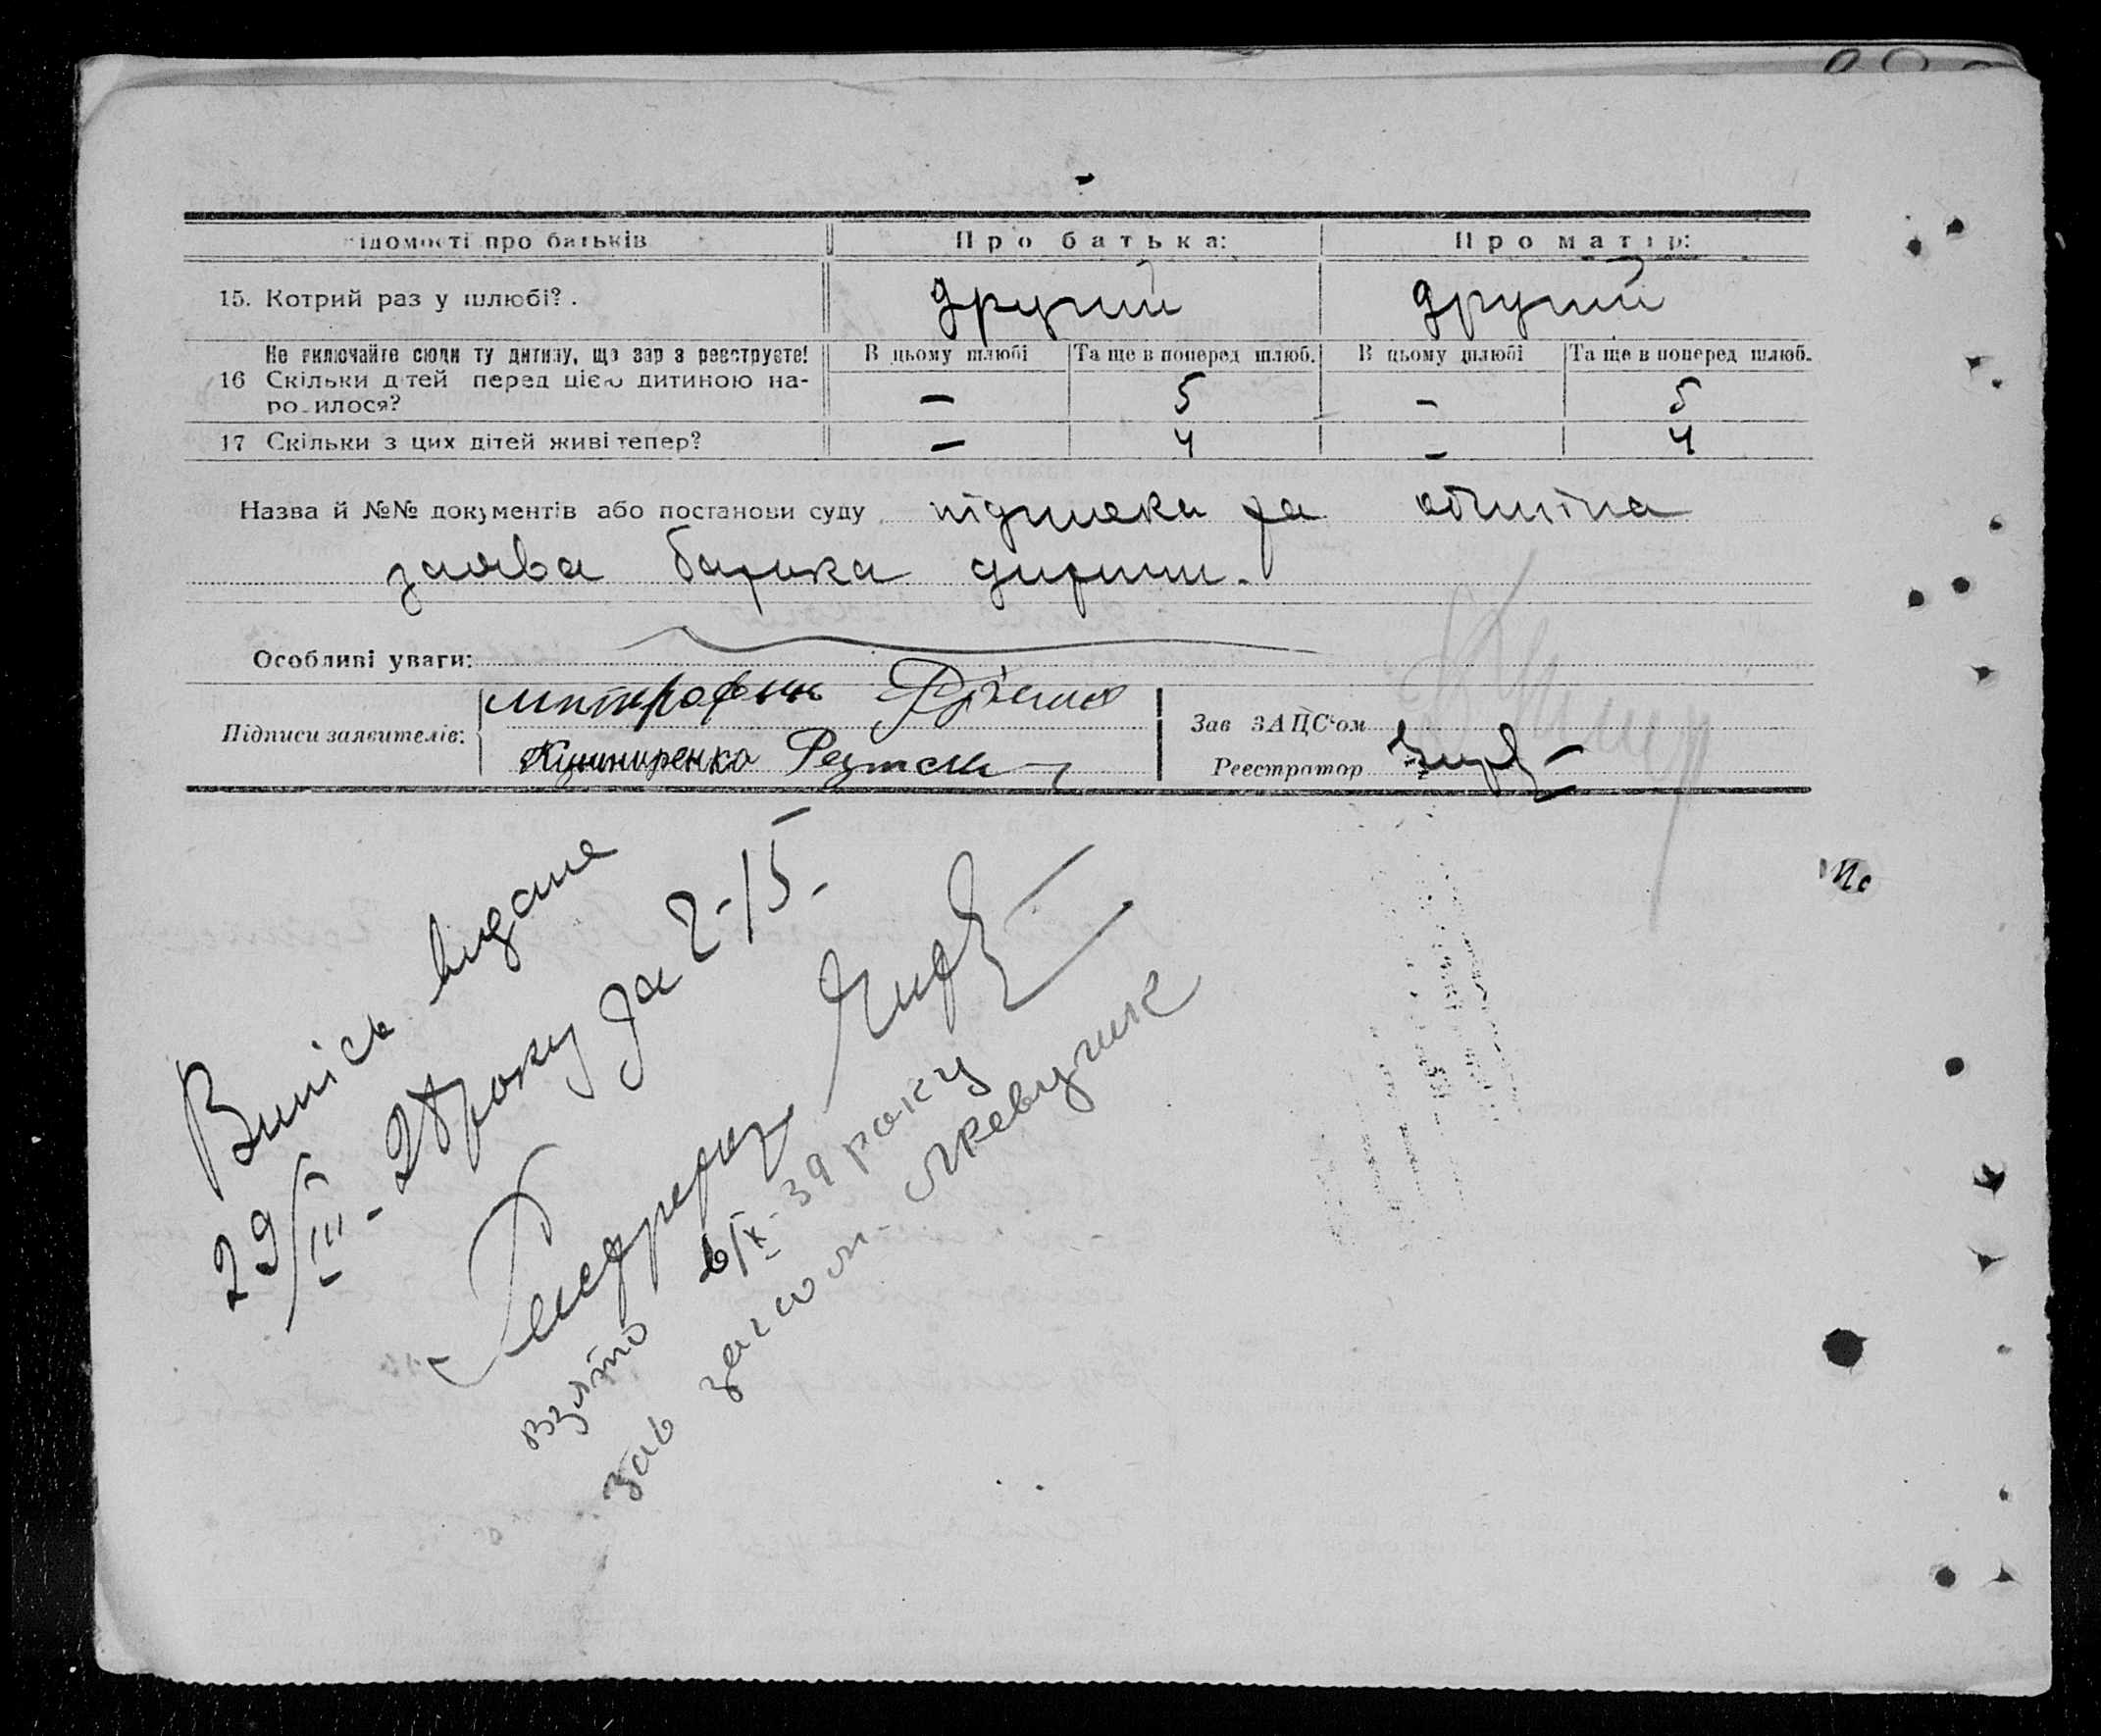 ідомості про батьків Про батька: Про матір:
15. Котрий раз у шлюбі? . другий другий
Не включайте сюди ту дитину, що зараз реєструєте! В цьому шлюбі Та ще в поперед шлюб. В цьому шлюбі Та ще в поперед шлюб.
16 Скільки дітей перед цією дитиною на-
родилося? — 5 - 5
17 Скільки з цих дітей живі тепер? — 4 - 4
Назва й №№ документів або постанови суду підписка та
заява батька дитини.
Особливі уваги:
Підписи заявителів: Митрофан
Кушниренко
Зав ЗАЦС'ом
Реєстратор
Випісь видана
29/III - 28 року за 2-15-
взято 6/IX - 39 року
зав загсом